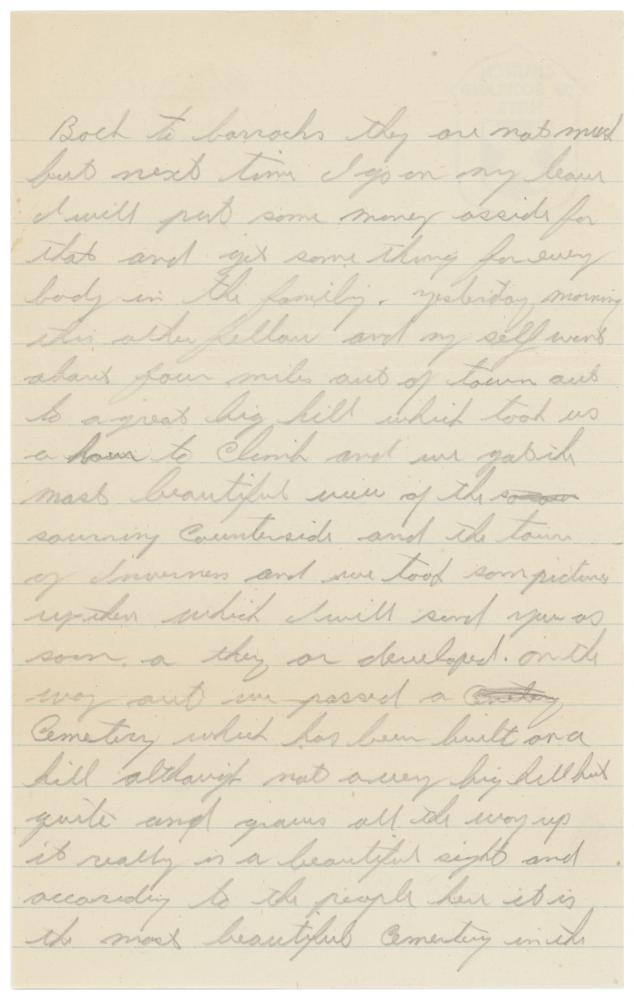 Back to barracks they are not much
but next time I go on my leave
I will put some money asside for
that and get some thing for every
body in the family. yesterday morning
this other fellow and my self went
about four miles out of town out
to a great big hill which took us
a hour to Climb and we got the
most beautiful view of the
sourning Counterside and the town
of Inverness and we took som pictures
up ther which I will send you as
soon. a they or developed. on the
way out we passed a Cemetery
Cemetery which has been built on a
hill although not a very big hill but
quite and graves all the way up
it really is a beautiful sight and
according to the people here it is
the most beautiful Cemertery in the